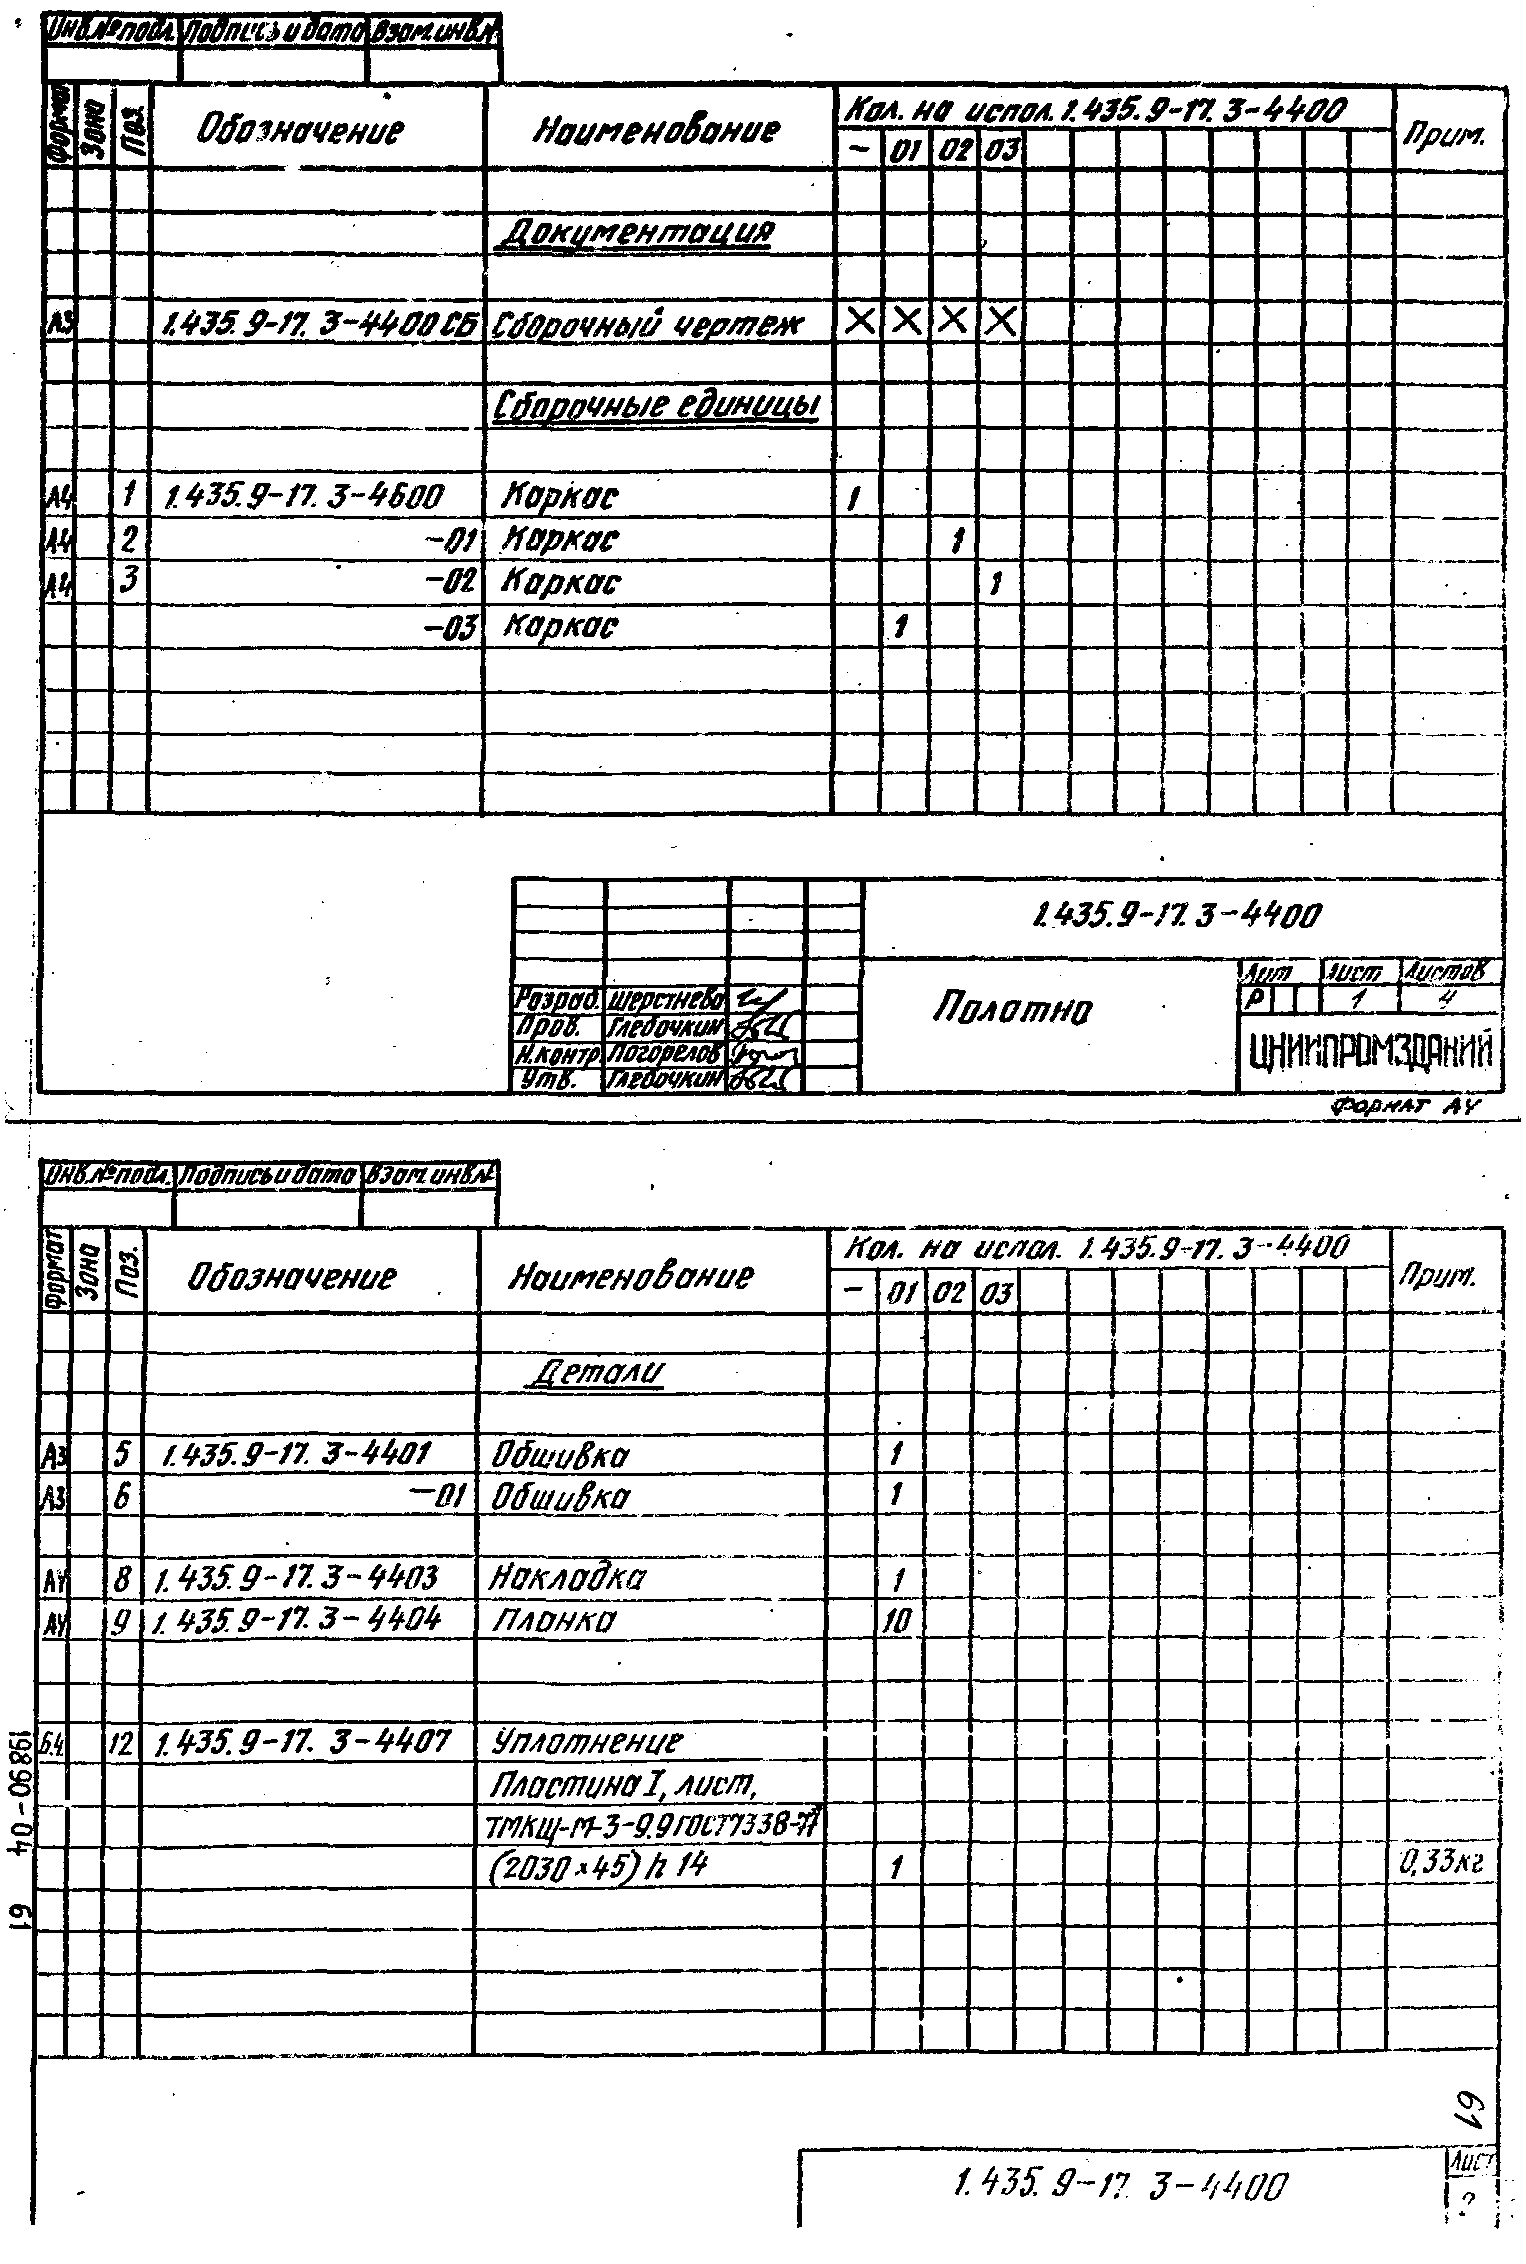 Инв.№подл. Подпись и дата Взам.инв.№
Формат Зона Поз. Обозначение Наименование Кол. на испол. 1.435.9-17. 3-4400 Прим.
– 01 02 03
Документация
А3 1.435.9-17. 3-4400 СБ Сборочный чертеж X X X X
Сборочные единицы
А4 1 1.435.9-17. 3-4600 Каркас 1
А4 2 -01 Каркас 1
А4 3 -02 Каркас 1
-03 Каркас 1
1.435.9-17. 3-4400
Разраб. Шерстнева
Пров. Глебочкин
Н.контр Погорелов
Утв. Глебочкин
Полотно
Лит Лист Листов
Р 1 4
ЦНИИПРОМЗДАНИЙ
Формат А4
Инв.№подл. Подпись и дата Взам.инв.№
Формат Зона Поз. Обозначение Наименование Кол. на испол. 1.435.9-17. 3-4400 Прим.
– 01 02 03
Детали
А3 5 1.435.9-17. 3-4401 Обшивка 1
А3 6 -01 Обшивка 1
А4 8 1.435.9-17. 3-4403 Накладка 1
А4 9 1.435.9-17. 3-4404 Планка 10
Б.Ч. 12 1.435.9-17. 3-4407 Уплотнение
Пластина I, лист,
ТМКЩ-М-3-9.9 ГОСТ 7338-77
(2030×45) h 14 1 0,33кг
19890-04 61
61
1.435.9-17. 3-4400
Лист
2